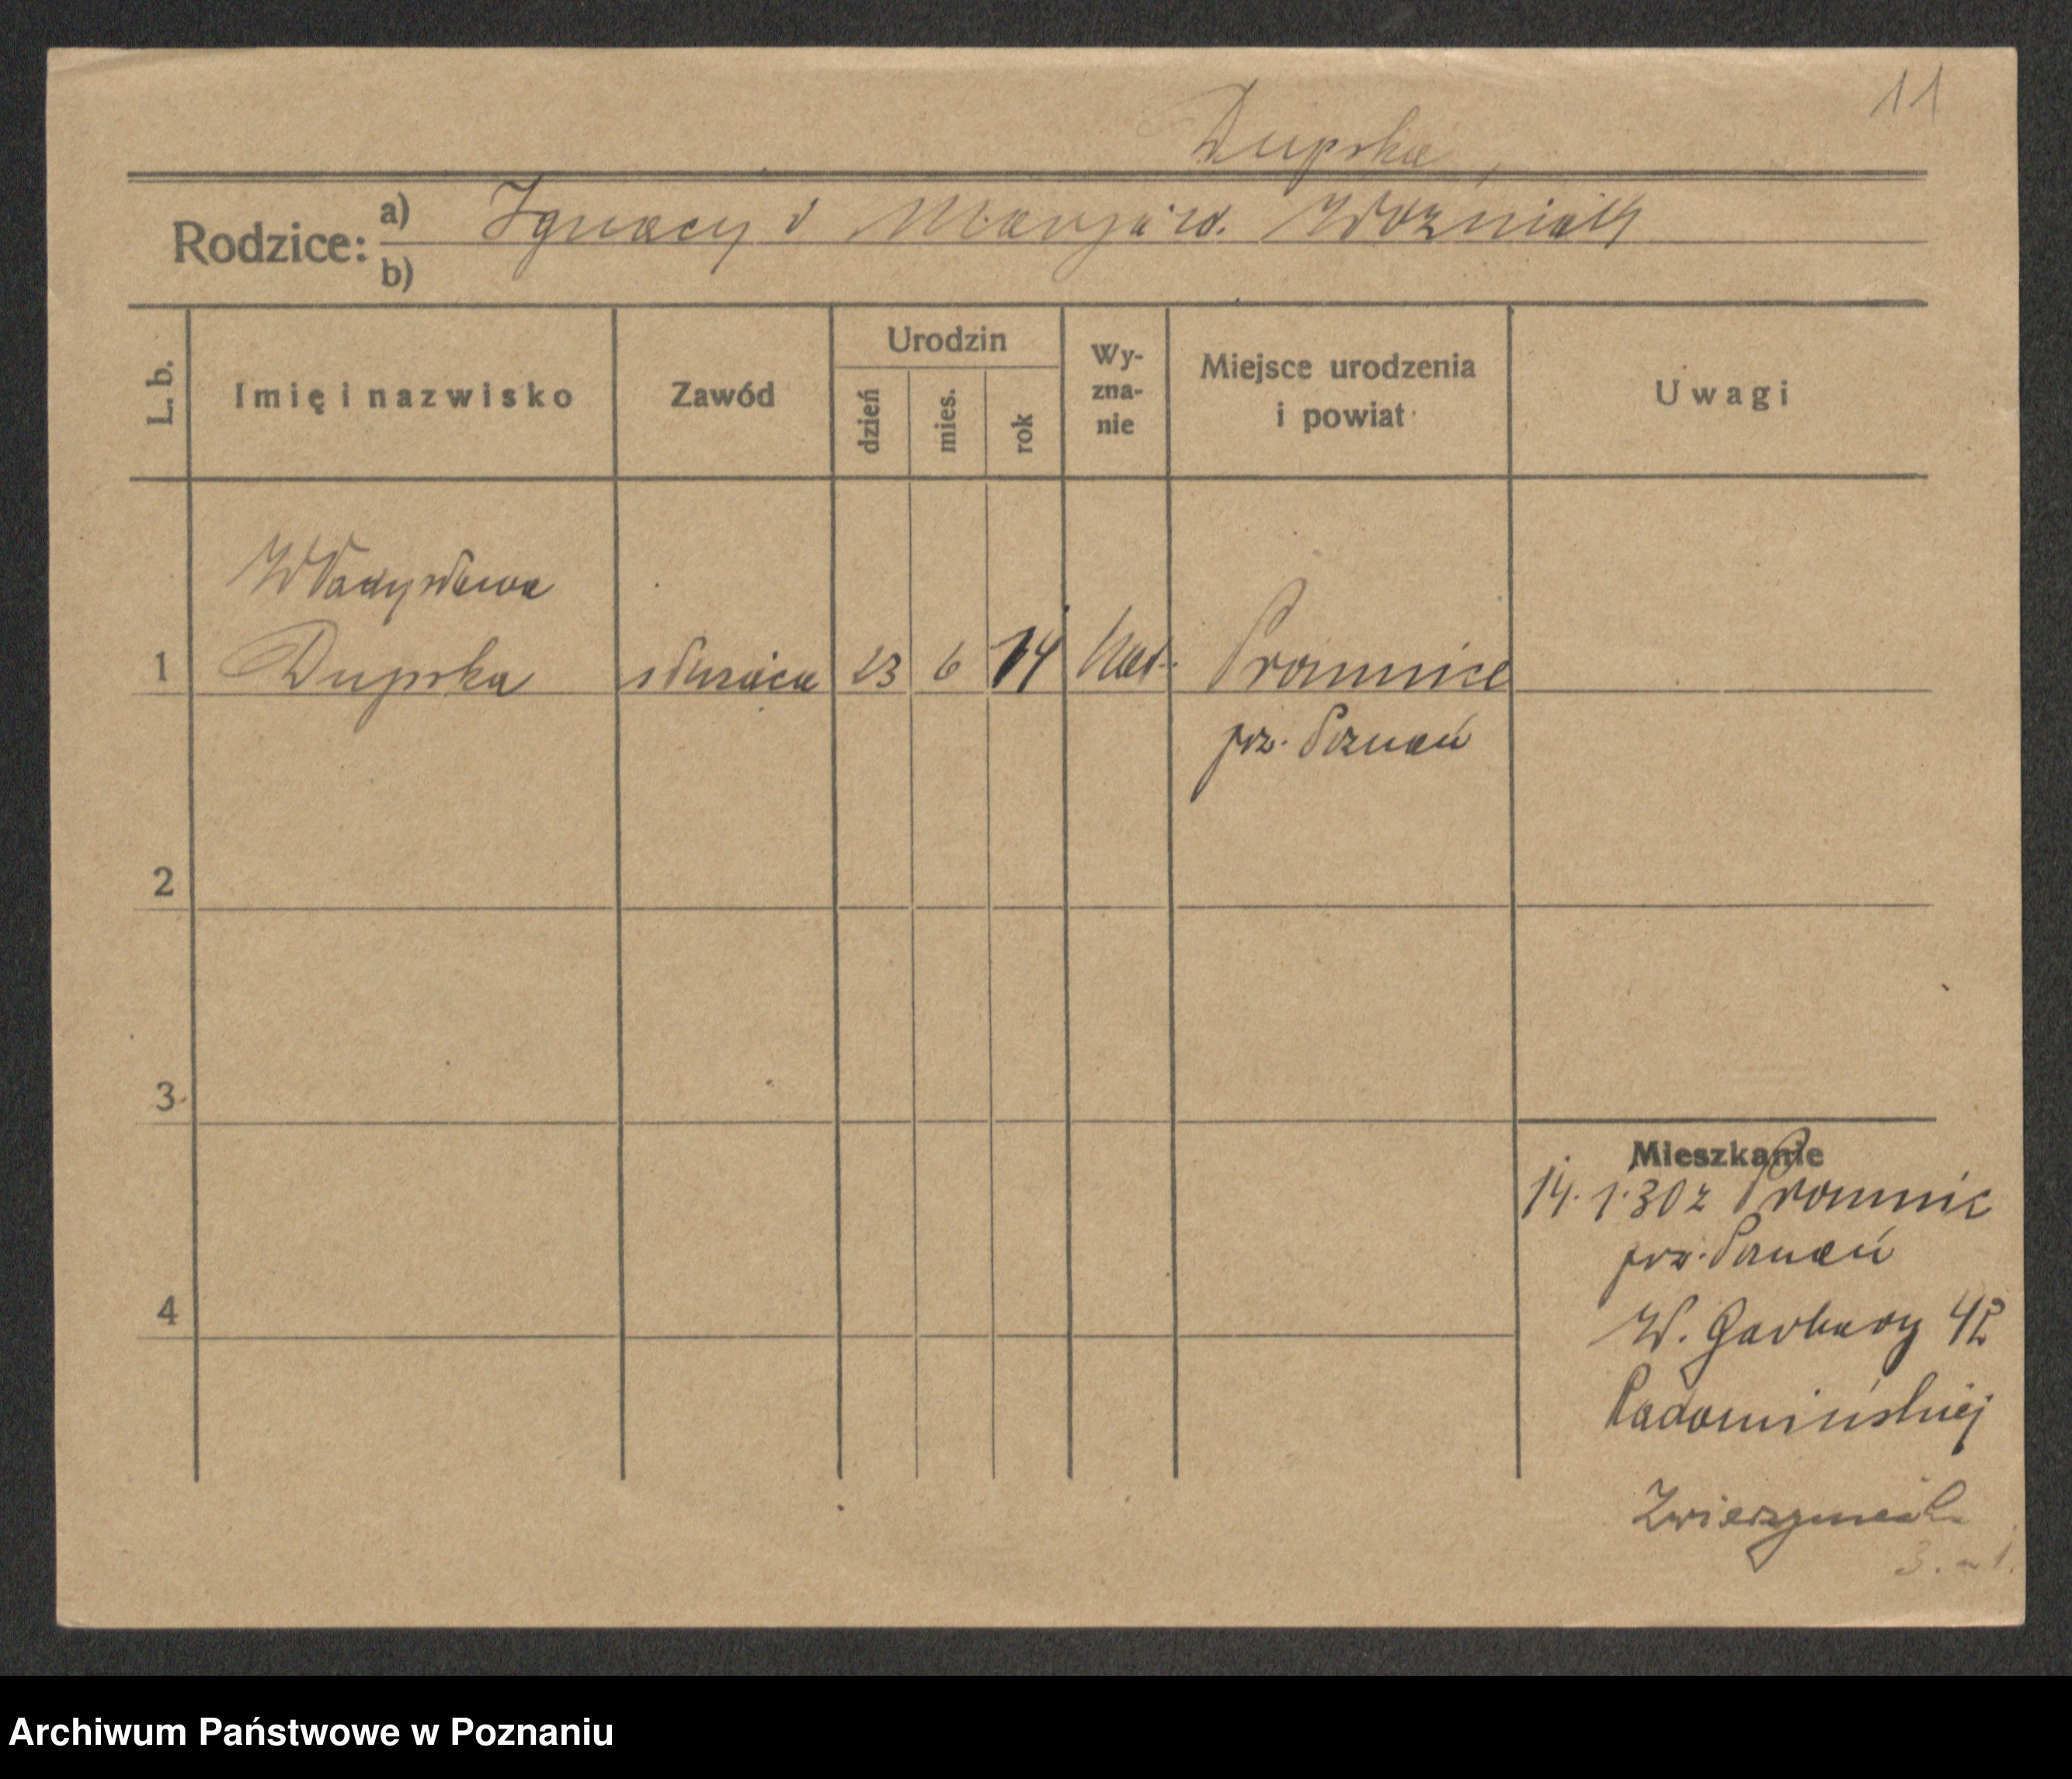 11
Dupska
Rodzice: a) Ignacy i Marja ur. Woźniak
b)
L. b. Imię i nazwisko Zawód Urodzin dzień mies. rok Wy-zna-nie Miejsce urodzenia i powiat Uwagi
Władysława
1 Dupska służąca 23 6 14 kat. Promnice
pow. Poznań
2
3
Mieszkanie
14.1.30 z Promnic
pow. Poznań
4
W. Garbary 42
Radomińskiej
Archiwum Państwowe w Poznaniu